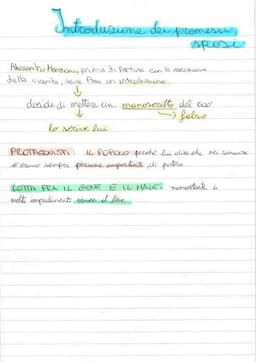 Introduzione dei promessi
sposi
Alessandro Manzoni, prima di partire con la narrazione
della vicenda, deve fare un introduzione.
decide di mettere un manoscritto del 600
falso
lo scrive lui
PROTAGONISTI: IL POPOLO perché lui dice che nei romanzi
c'erano sempre persone importanti, di potere
LOTTA FRA IL BENE E IL MALE: nonostante i
molti impedimenti vince il bene